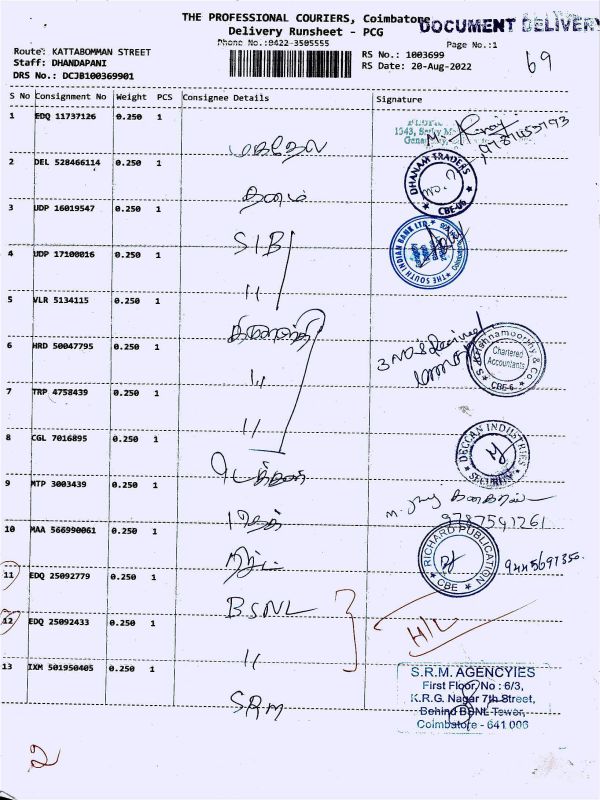 THE PROFESSIONAL COURIERS, Coimbatore
DOCUMENT DELIVERY
Delivery Runsheet - PCG
Phone No.:0422-3505555
Page No.:1
Route: KATTABOMMAN STREET
RS No.: 1003699
Staff: DHANDAPANI
RS Date: 20-Aug-2022
69
DRS No.: DCJB100369901
S No Consignment No Weight PCS Consignee Details Signature
1 EDQ 11737126 0.250 1
2 DEL 528466114 0.250 1
DHANAM TRADERS
CBE-06
3 UDP 16019547 0.250 1
SIB
THE SOUTH INDIAN BANK LTD.
4 UDP 17100016 0.250 1
"
5 VLR 5134115 0.250 1
6 HRD 50047795 0.250 1
"
Krishnamoorthy & Co
Chartered
Accountants
CBE-6
7 TRP 4758439 0.250 1
"
8 CGL 7016895 0.250 1
DECCAN INDUSTRIES
SECURITY
9 MTP 3003439 0.250 1
9787597261
10 MAA 566990061 0.250 1
RICHARD PUBLICATION
CBE
9445691350
11 EDQ 25092779 0.250 1
BSNL
12 EDQ 25092433 0.250 1
"
H/L
13 IXM 501950405 0.250 1
S.R.M
S.R.M. AGENCYIES
First Floor, No : 6/3,
K.R.G. Nagar 7th Street,
Behind BSNL Tower,
Coimbatore - 641 006
2